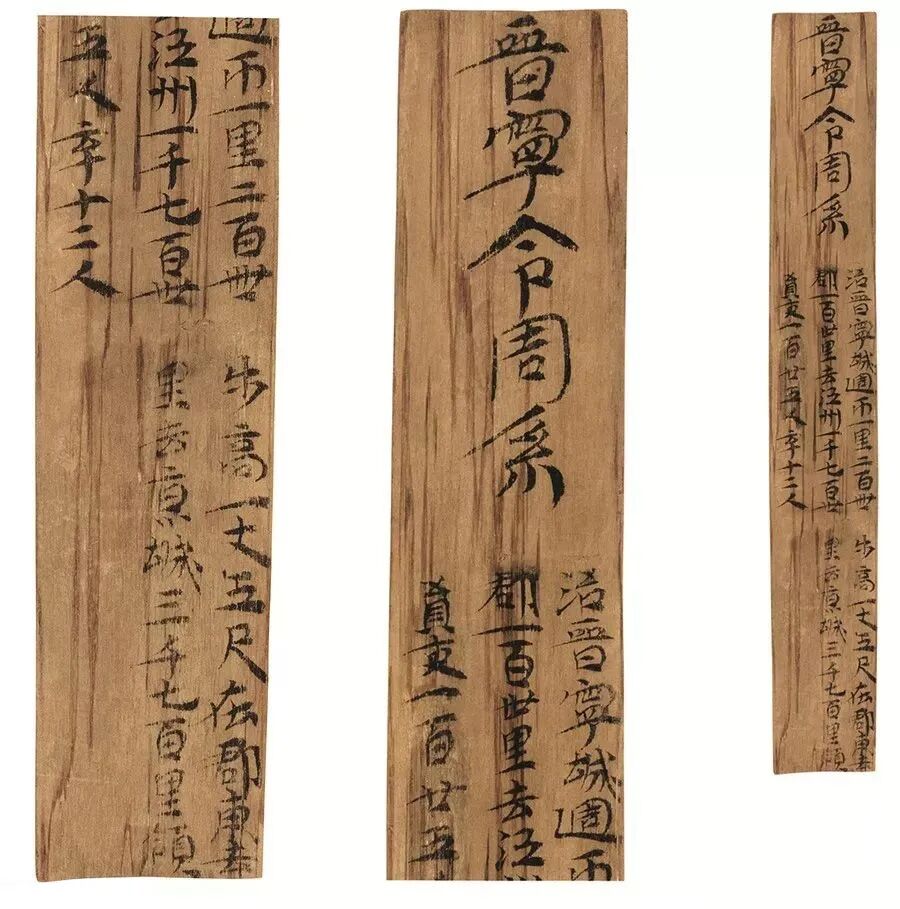 晉寧令周系
治晉寧城週帀一里二百卌步高一丈五尺在郡東去
郡一百卅里去江州一千七百卅里去京城三千七百里領
員吏一百廿五人卒十二人
晉寧令周系
治晉寧城週帀
郡一百卅里去江
員吏一百廿五
週帀一里二百卌步高一丈五尺在郡東去
江州一千七百卅里去京城三千七百里領
五人卒十二人